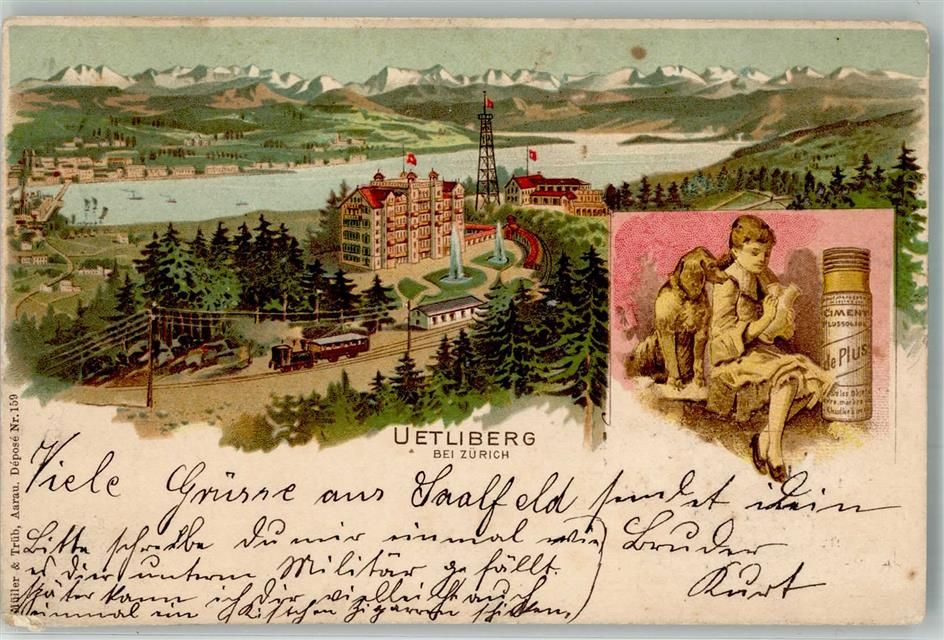 CIMENT
PLUSSOLIDE
de Plus
UETLIBERG
BEI ZÜRICH
Müller & Trüb, Aarau. Déposé Nr. 159
Viele Grüsse aus Saalfeld sendet Dein
Bruder
Kurt
Bitte schreibe du mir einmal wie
es dir unterm Militär gefällt.
Später kann ich dir vielleicht auch
einmal ein Kistchen Zigarren schicken.